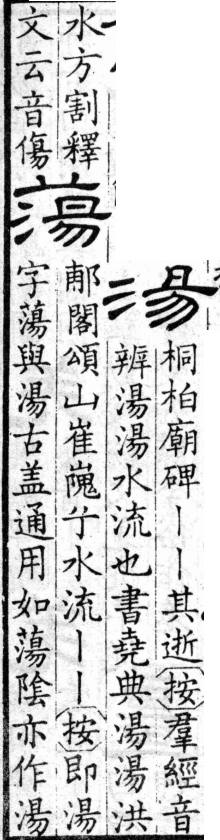 湯
桐柏廟碑丨丨其逝按羣經音
辨湯湯水流也書堯典湯湯洪
水方割釋
文云音傷
蕩
郙閣頌山崔嵬兮水流丨丨按即湯
字蕩與湯古盖通用如蕩陰亦作湯